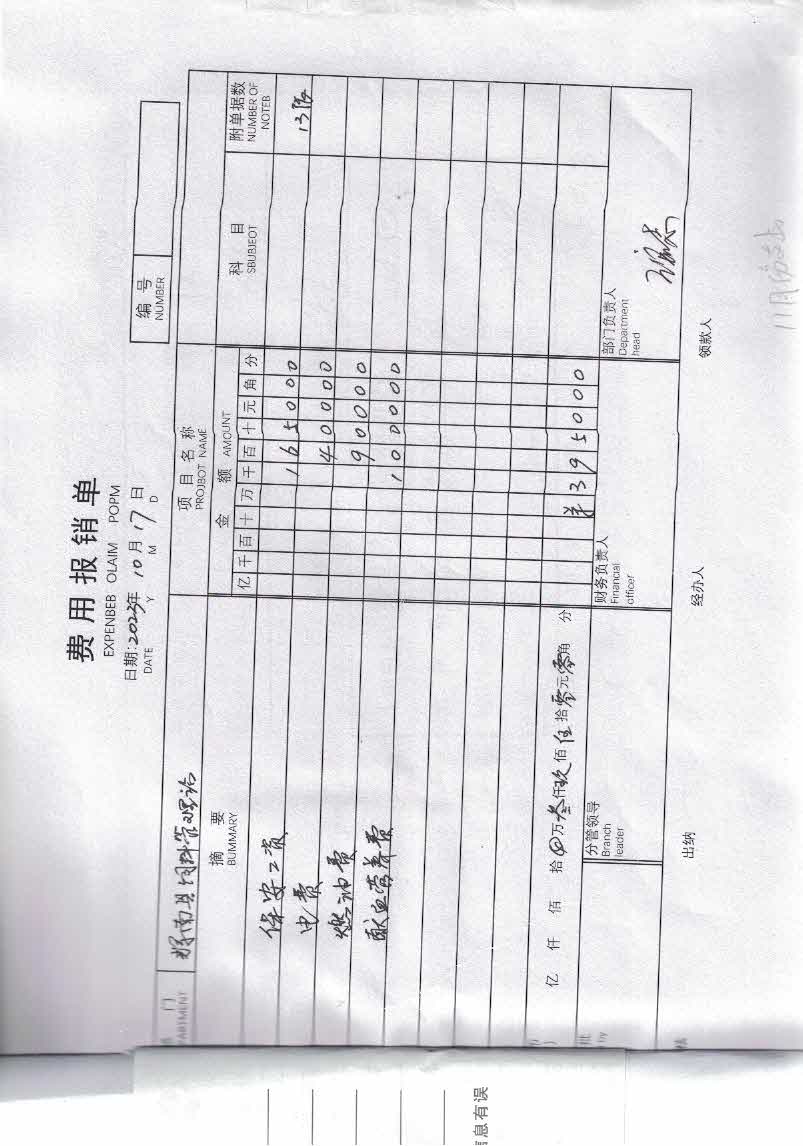 费用报销单
EXPENBEB OLAIM POPM
日期:2023年10月17日
DATE Y M D
编号
NUMBER
门 辉南县饲料管理站 项目名称
ARTMENT PROJBOT NAME
摘要 金额 AMOUNT 科目 附单据数
BUMMARY SBUBJEOT NUMBER OF
NOTEB
亿千百十万千百十元角分
保安工资 165000 13张
电费 40000
燃油费 90000
献血营养费 100000
亿 仟 佰 拾 万叁仟玖佰伍拾零元零角 分 ¥395000
批 分管领导 财务负责人 部门负责人
Branch Financial Department
leader officer head
出纳 经办人 领款人
息有误